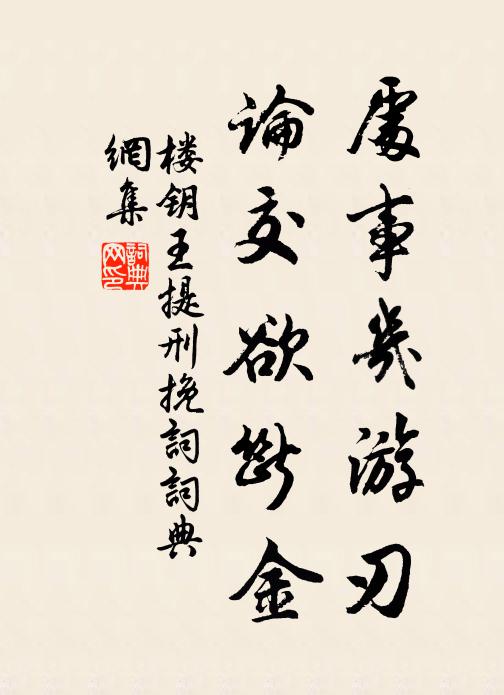 處事幾游刃
論交欲斷金
楼钥王提刑挽詞詞典
網集
詞典網印